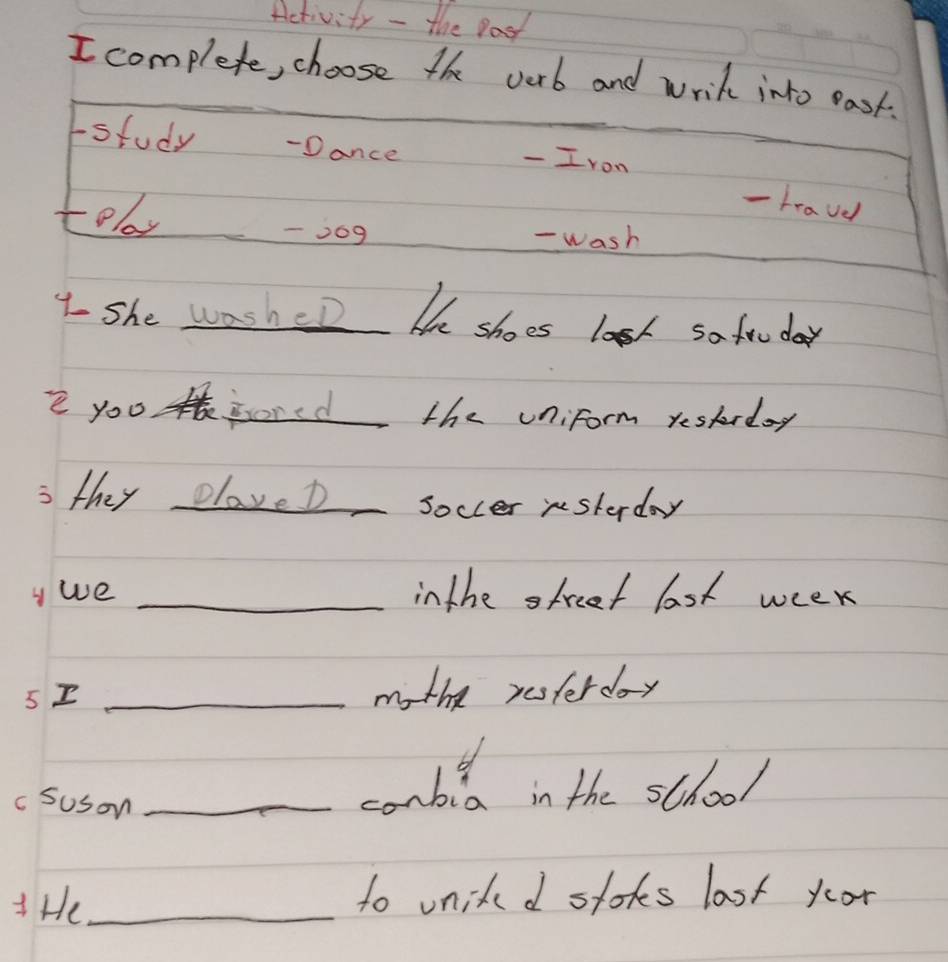 Activity - the past
I complete, choose the verb and write into past.
-study -Dance -Iron
-travel
-play -jog -wash
1- She washeD the shoes last satruday
2 you ironed the uniform yesterday
3 they playeD soccer yesterday
4 we inthe street last week
5 I mathe yesterday
6 Suson conbia in the school
7 He to united states last year